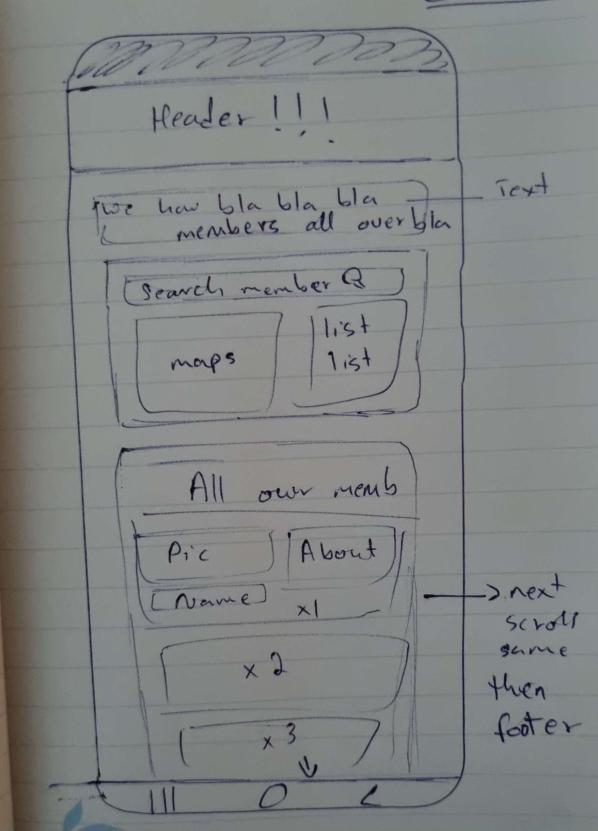 Header !!!
we hav bla bla bla
members all over bla
Text
Search member
maps
list
list
All our memb
Pic
About
Name
x1
x2
x3
next
scroll
same
then
footer